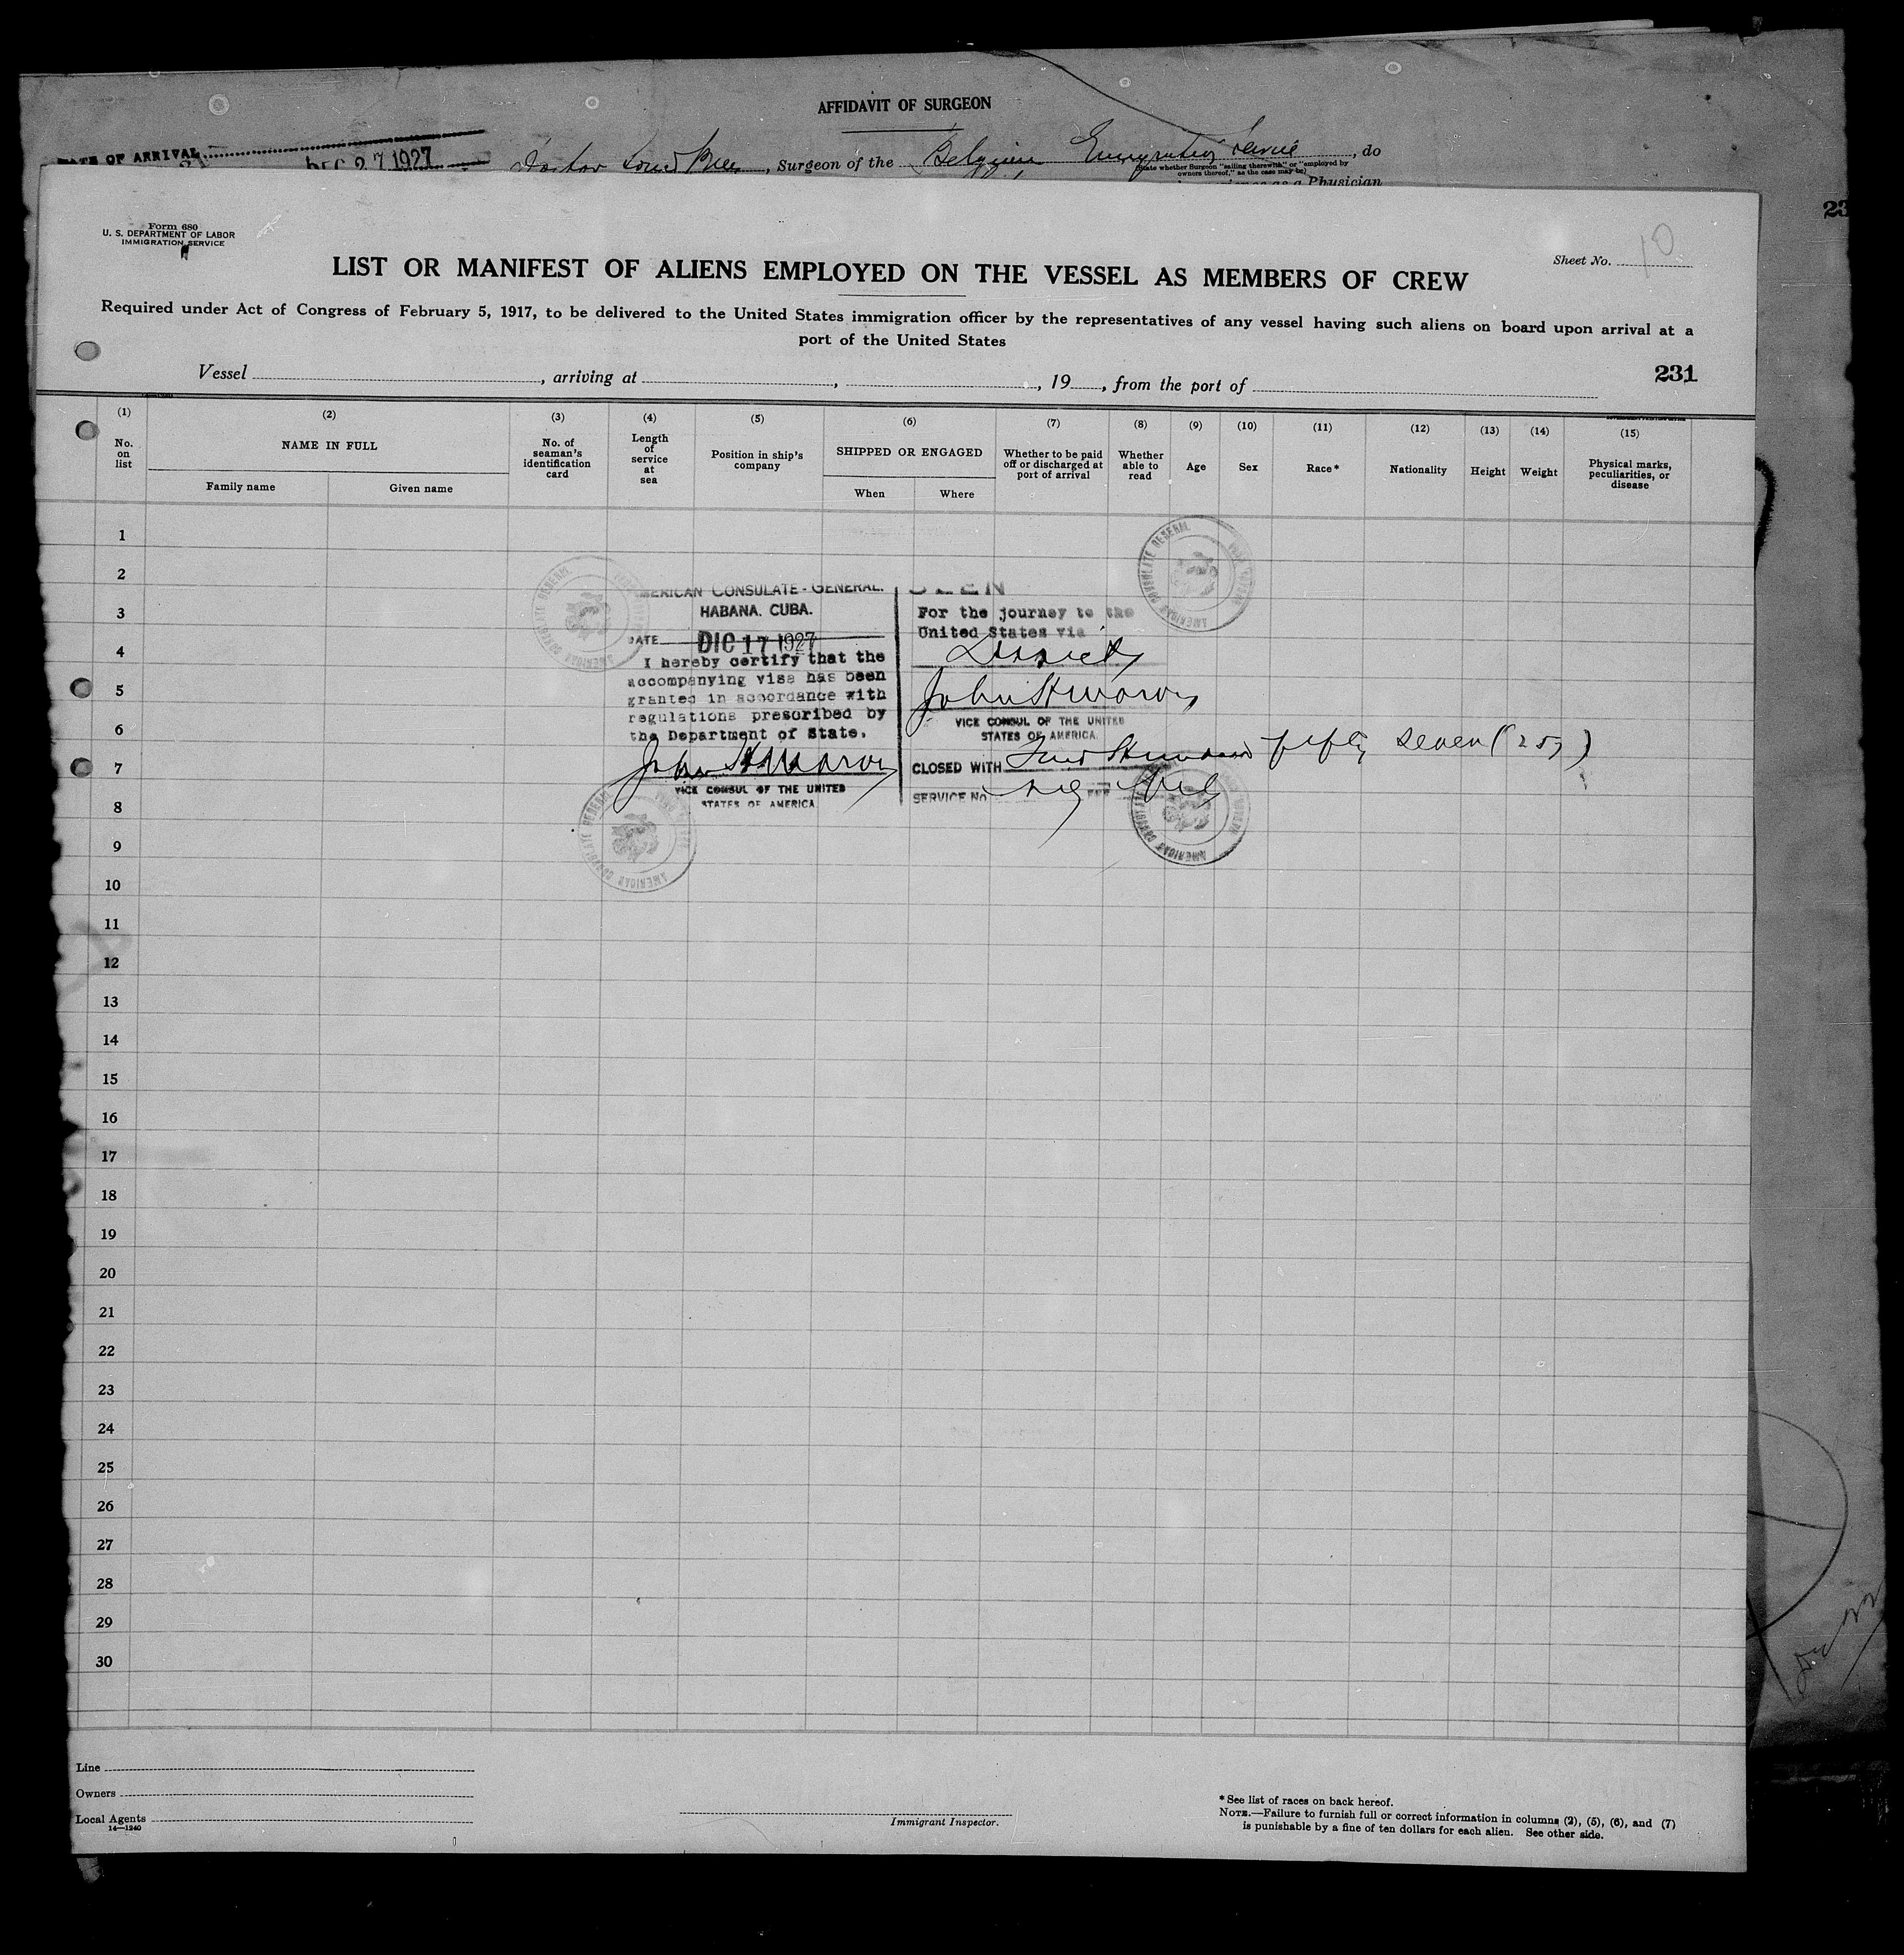 AFFIDAVIT OF SURGEON
DATE OF ARRIVAL
DEC 27 1927
Doctor , Surgeon of the Belgian Emigration Service, do
(State whether Surgeon "sailing therewith" or "employed by
owners thereof," as the case may be)
as a Physician
23
Form 680
U. S. DEPARTMENT OF LABOR
IMMIGRATION SERVICE
Sheet No. 10
LIST OR MANIFEST OF ALIENS EMPLOYED ON THE VESSEL AS MEMBERS OF CREW
Required under Act of Congress of February 5, 1917, to be delivered to the United States immigration officer by the representatives of any vessel having such aliens on board upon arrival at a
port of the United States
Vessel , arriving at , , 19 , from the port of
231
(1) (2) (3) (4) (5) (6) (7) (8) (9) (10) (11) (12) (13) (14) (15)
No. on list
NAME IN FULL
Family name
Given name
No. of seaman's identification card
Length of service at sea
Position in ship's company
SHIPPED OR ENGAGED
When
Where
Whether to be paid off or discharged at port of arrival
Whether able to read
Age
Sex
Race*
Nationality
Height
Weight
Physical marks, peculiarities, or disease
1
2
3
4
5
6
7
8
9
10
11
12
13
14
15
16
17
18
19
20
21
22
23
24
25
26
27
28
29
30
AMERICAN CONSULATE-GENERAL.
HABANA. CUBA.
DATE DIC 17 1927
I hereby certify that the
accompanying visa has been
granted in accordance with
regulations prescribed by
the Department of State.
John
VICE CONSUL OF THE UNITED
STATES OF AMERICA
SEEN
For the journey to the
United States via
Direct
John
VICE CONSUL OF THE UNITED
STATES OF AMERICA.
CLOSED WITH Two Hundred fifty seven (257)
SERVICE No FEE
AMERICAN CONSULATE GENERAL
AMERICAN CONSULATE GENERAL
AMERICAN CONSULATE GENERAL
AMERICAN CONSULATE GENERAL
Line
Owners
Local Agents
14—1240
Immigrant Inspector.
*See list of races on back hereof.
NOTE.—Failure to furnish full or correct information in columns (2), (5), (6), and (7)
is punishable by a fine of ten dollars for each alien. See other side.